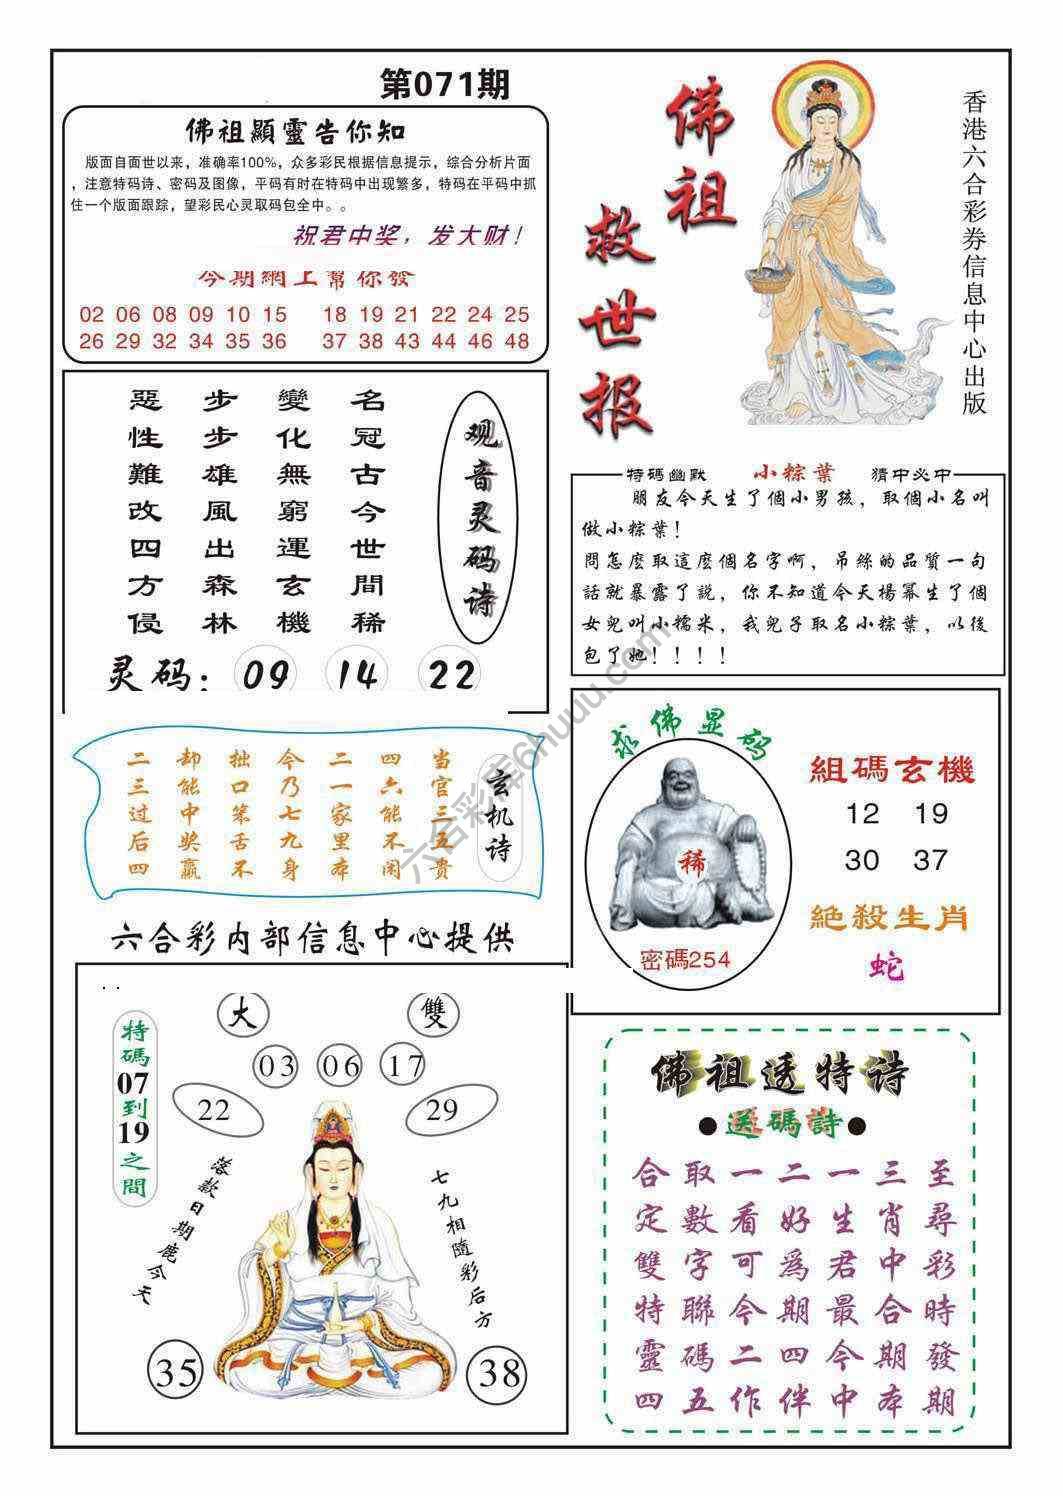 第071期
佛祖顯靈告你知
版面自面世以来，准确率100%，众多彩民根据信息提示，综合分析片面
，注意特码诗、密码及图像，平码有时在特码中出现繁多，特码在平码中抓
住一个版面跟踪，望彩民心灵取码包全中。。
祝君中奖，发大财！
今期網上幫你發
02 06 08 09 10 15 18 19 21 22 24 25
26 29 32 34 35 36 37 38 43 44 46 48
佛祖
救世报
香港六合彩券信息中心出版
观音灵码诗
名冠古今世間稀
變化無窮運玄機
步步雄風出森林
惡性難改四方侵
灵码： 09 14 22
特碼幽默 小粽葉 猜中必中
朋友今天生了個小男孩，取個小名叫
做小粽葉！
問怎麽取這麽個名字啊，吊絲的品質一句
話就暴露了説，你不知道今天楊冪生了個
女兒叫小糯米，我兒子取名小粽葉，以後
包了她！！！！
玄机诗
当官三五贵
四六能不闲
二一家里本
今乃七九身
拙口笨舌不
却能中奖赢
二三过后四
六合彩内部信息中心提供
求佛显码
稀
密碼254
組碼玄機
12 19
30 37
絶殺生肖
蛇
. .
大 雙
03 06 17
22 29
特碼07到19之間
落款日期鹿今天
七九相隨彩后方
35 38
佛祖透特诗
●送碼詩●
至尋彩時發期
三肖中合期本
一生君最今中
二好為期四伴
一看可今二作
取數字聯碼五
合定雙特靈四
六合彩库6huuu.com